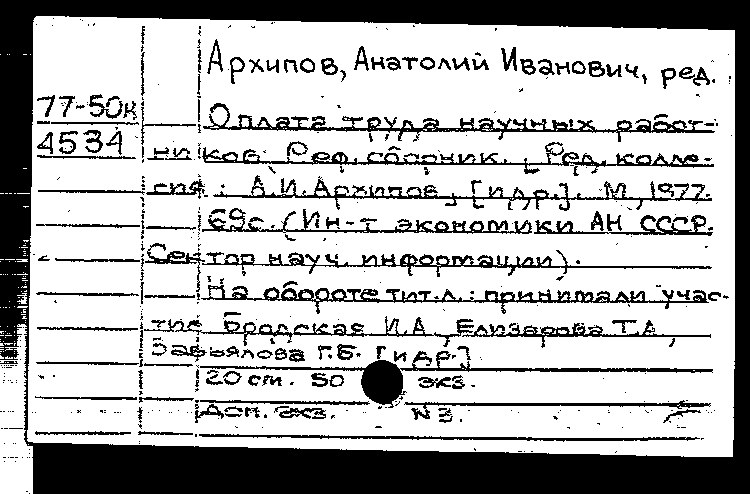 Архипов, Анатолий Иванович, ред.
77-50к
4534
Оплата труда научных работ-
ников. Реф. сборник. [Ред. колле-
гия: А.И. Архипов, [и др.]. М., 1977.
69с. (Ин-т экономики АН СССР.
Сектор науч. информации).
На обороте тит. л.: принимали учас-
тие Бродская И.А., Елизарова Т.А.,
Завьялова Г.Б. [и др.]
20 см. 50 экз.
Доп. экз. N3.